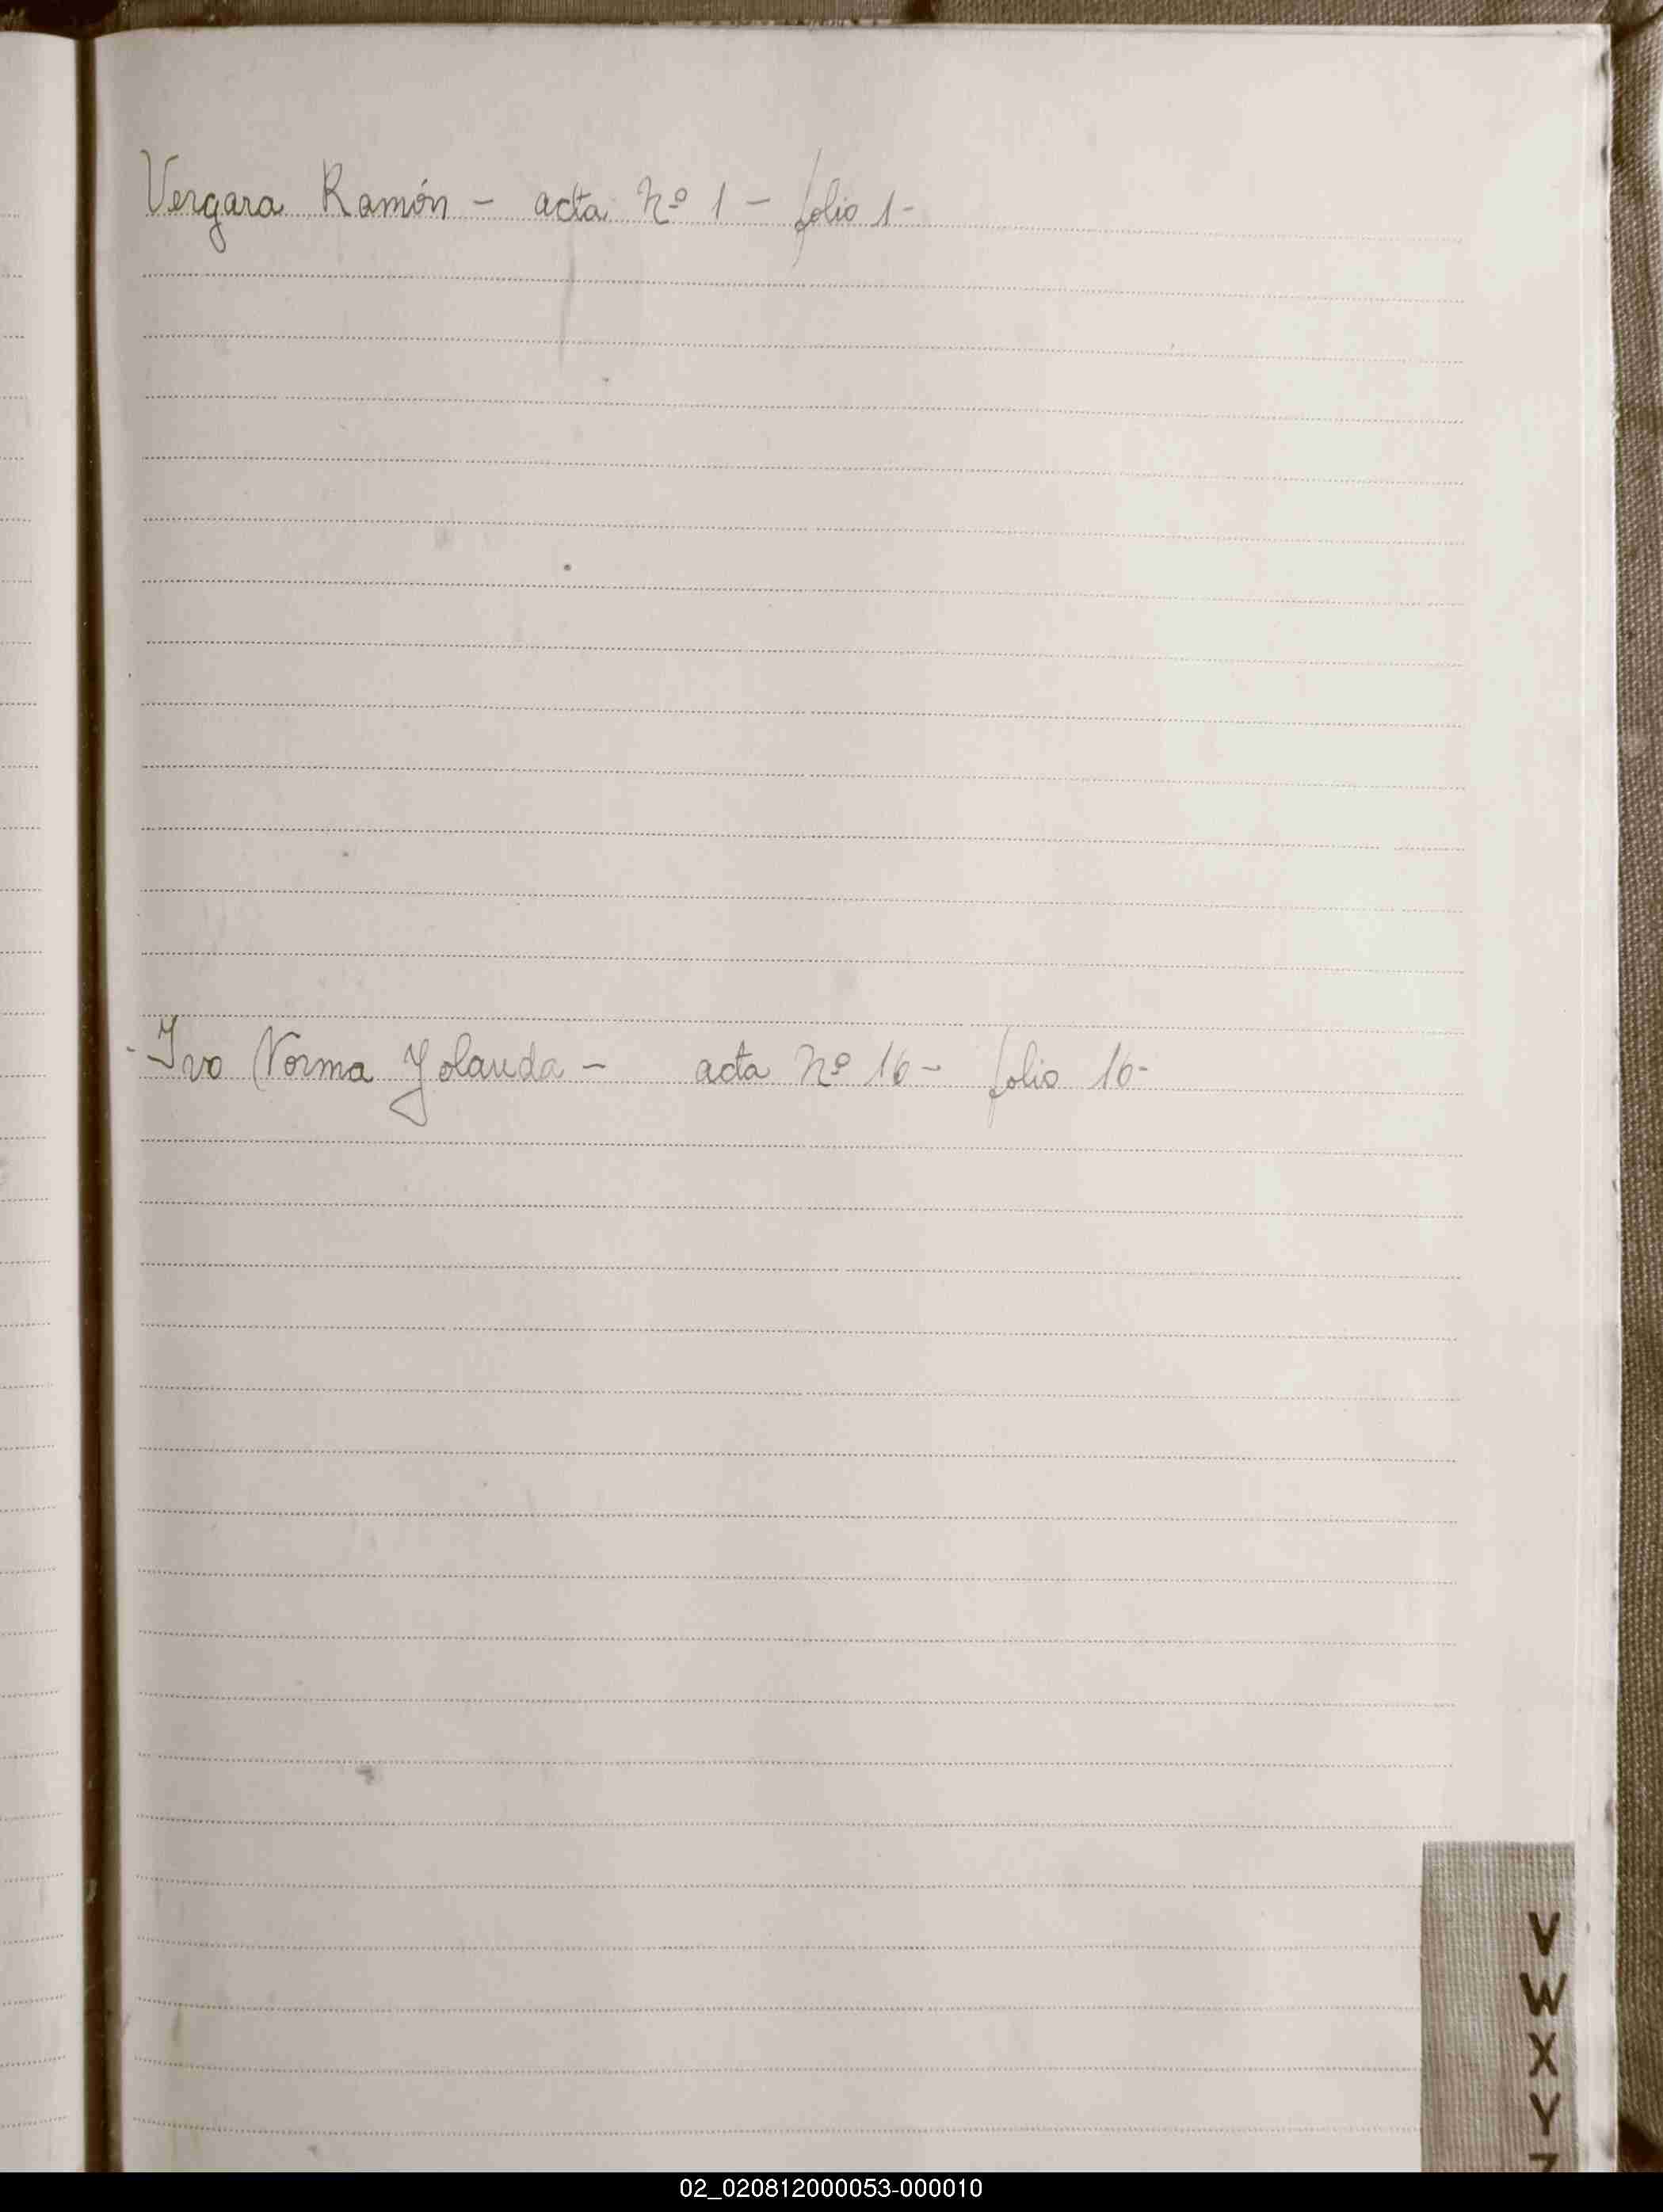 Vergara Ramón - acta Nº 1 - folio 1-
- Ivo Norma Yolanda - acta Nº 16 - folio 16-
V
W
X
Y
Z
02_020812000053-000010